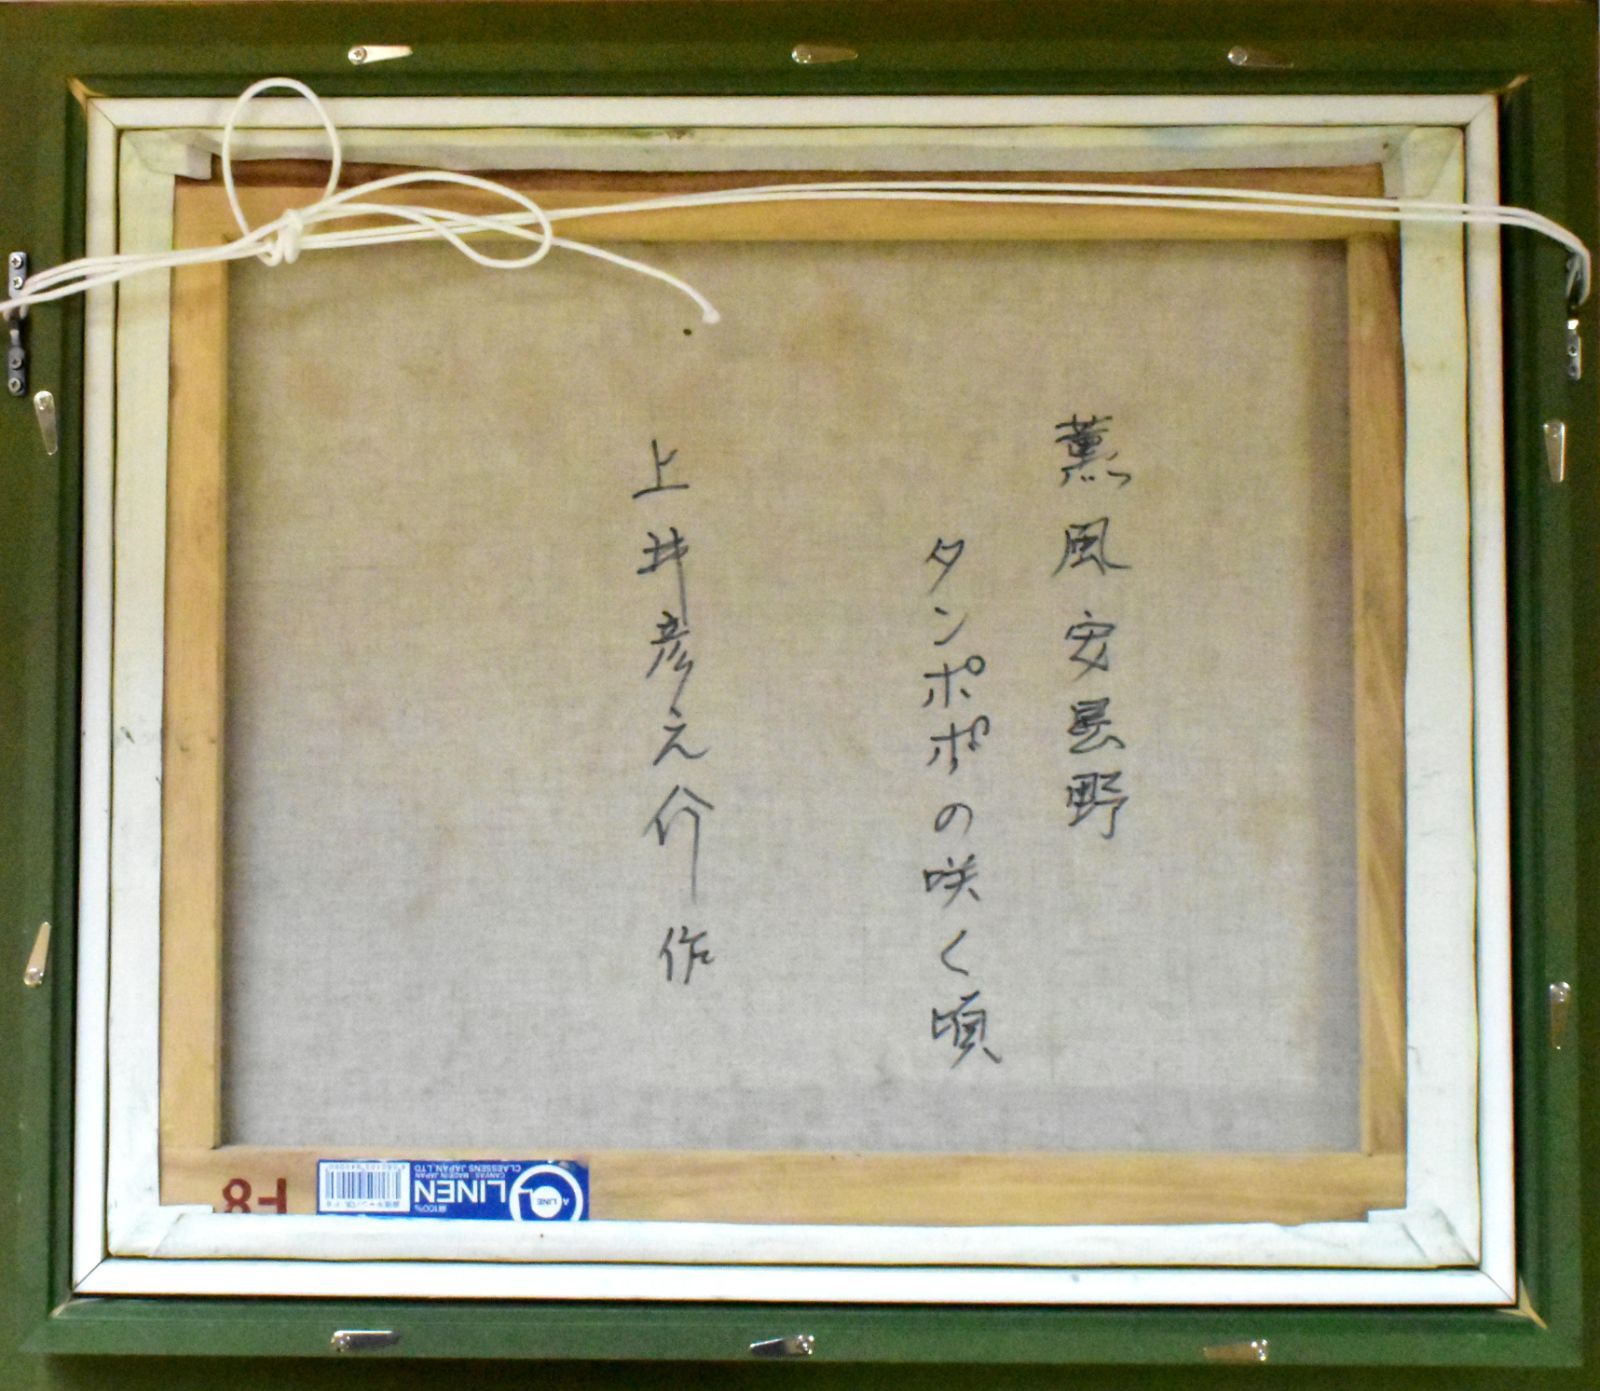 薫風安曇野
タンポポの咲く頃
上井彦之介作
F8
LINEN
麻100%
A LINE
CANVAS MADE IN JAPAN
CLAESSENS JAPAN.LTD